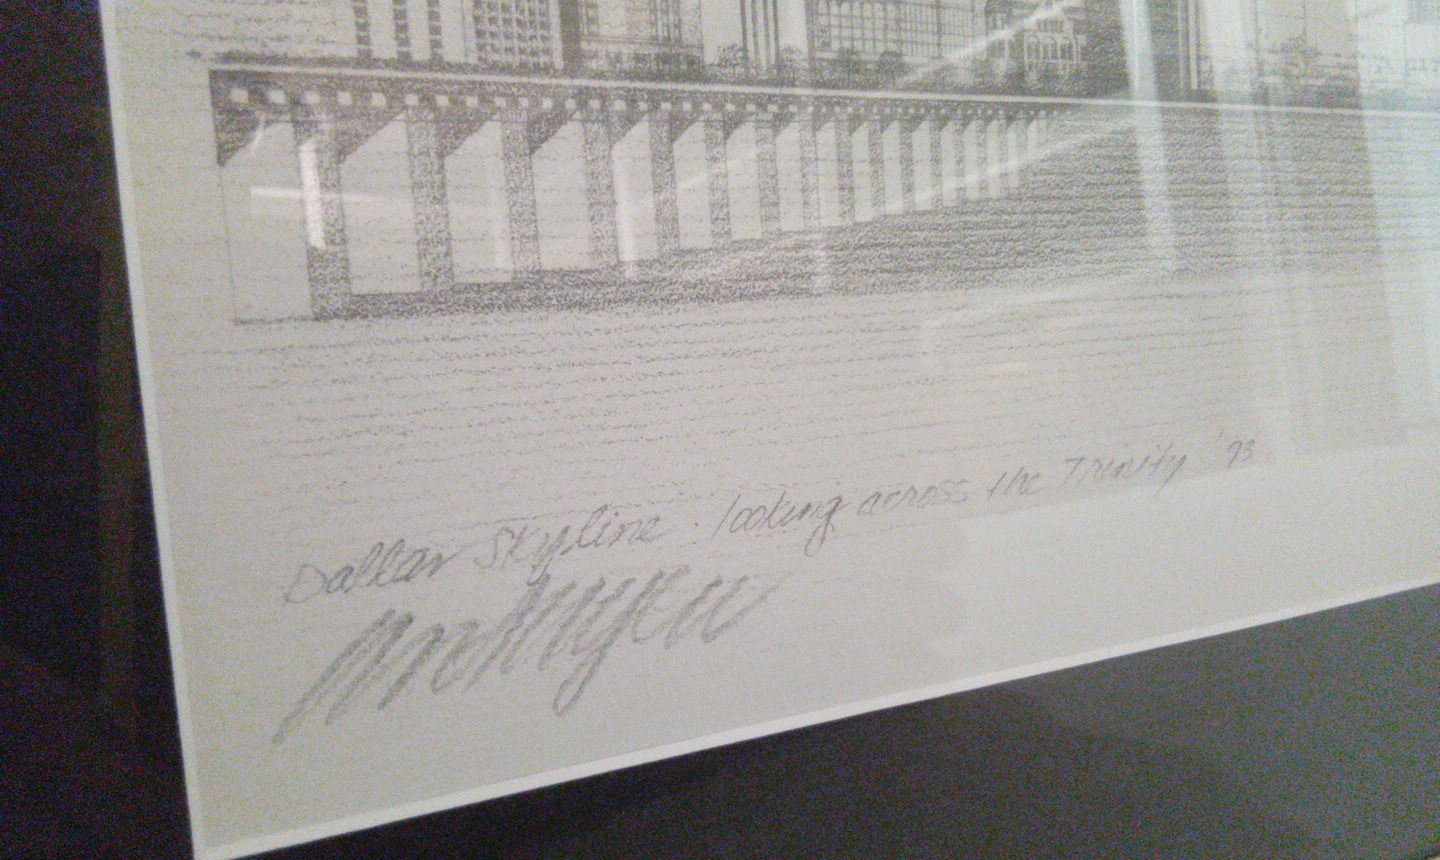 Dallas Skyline. looking across the Trinity '93